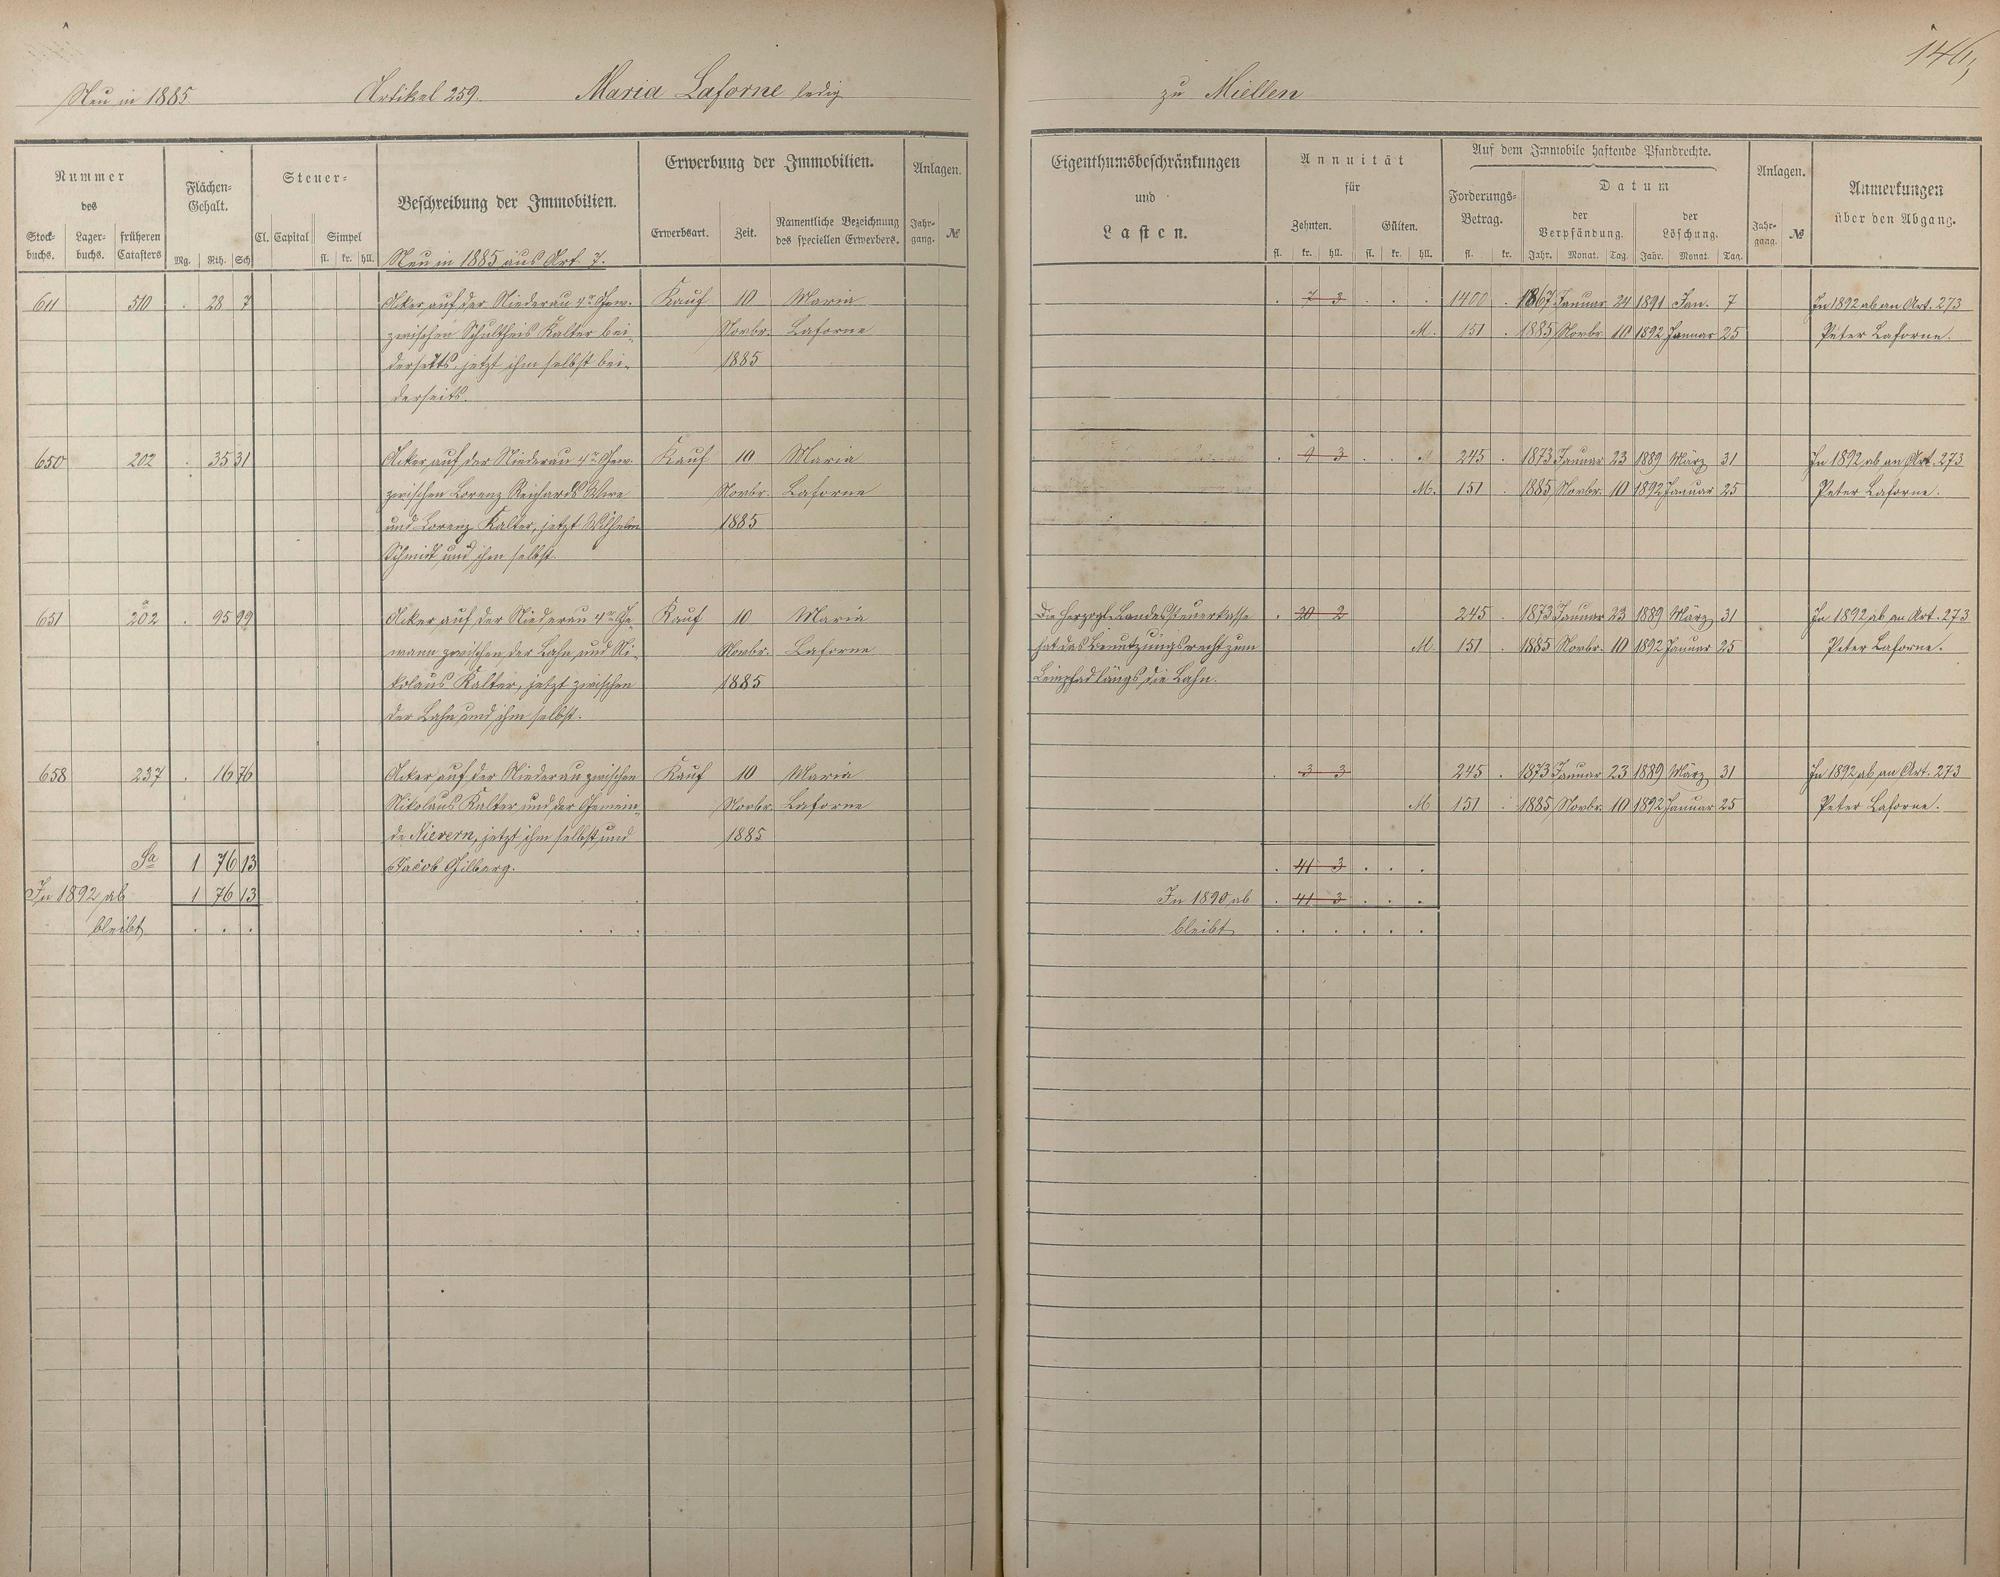 146,
Neu in 1885 Artikel 259. Maria Laforne ledig zu Miellen
Nummer des
Stock-buchs. Lager-buchs. früheren Catasters
Flächen-Gehalt.
Mg. Rth. Sch
Steuer-
Cl. Capital Simpel
fl. kr. hll.
Beschreibung der Immobilien.
Erwerbung der Immobilien.
Erwerbsart. Zeit. Namentliche Bezeichnung des speciellen Erwerbers.
Anlagen.
Jahr-gang. №
Eigenthumsbeschränkungen
und
Lasten.
Annuität
für
Zehnten. Gülten.
fl. kr. hll. fl. kr. hll.
Auf dem Immobile haftende Pfandrechte.
Forderungs-Betrag.
fl. kr.
Datum
der Verpfändung. der Löschung.
Jahr. Monat. Tag. Jahr. Monat. Tag.
Anlagen.
Jahr-gang. №
Anmerkungen
über den Abgang.
Neu in 1885 aus Art. 7.
611 510 . 28 7 Acker auf der Niederau 4r Gew. Kauf 10 Maria . 7 3 . . . 1400 . 1867 Januar 24 1891 Jan. 7 In 1892 ab an Art. 273
zwischen Schultheis Kalter bei- Novbr. Laforne M. 151 . 1885 Novbr. 10 1892 Januar 25 Peter Laforne.
derseits, jetzt ihm selbst bei- 1885
derseits.
650 202 . 35 31 Acker auf der Niederau 4r Gew. Kauf 10 Maria . 9 3 . . . 245 . 1873 Januar 23 1889 März 31 In 1892 ab an Art. 273
zwischen Lorenz Reichards Wwe Novbr. Laforne M. 151 . 1885 Novbr. 10 1892 Januar 25 Peter Laforne.
und Lorenz Kalter, jetzt Wilhelm 1885
Schmidt und ihm selbst.
651 202 a . 95 99 Acker auf der Niederau 4r Ge- Kauf 10 Maria Die Herzogl. Landessteuerkasse . 20 2 245 . 1873 Januar 23 1889 März 31 In 1892 ab an Art. 273
wann zwischen der Lahn und Ni- Novbr. Laforne hat das Benutzungsrecht zum M. 151 . 1885 Novbr. 10 1892 Januar 25 Peter Laforne.
kolaus Kalter, jetzt zwischen 1885 Leinpfad längs die Lahn.
der Lahn und ihm selbst.
658 237 . 16 76 Acker auf der Niederau zwischen Kauf 10 Maria . 3 3 245 . 1873 Januar 23 1889 März 31 In 1892 ab an Art. 273
Nikolaus Kalter und der Gemein- Novbr. Laforne M 151 . 1885 Novbr. 10 1892 Januar 25 Peter Laforne.
de Nievern, jetzt ihm selbst und 1885
Sa 1 76 13 Jacob Gilberg. . 41 3 . . .
In 1892 ab 1 76 13 In 1890 ab . 41 3 . . .
bleibt . . . bleibt . . . . . .